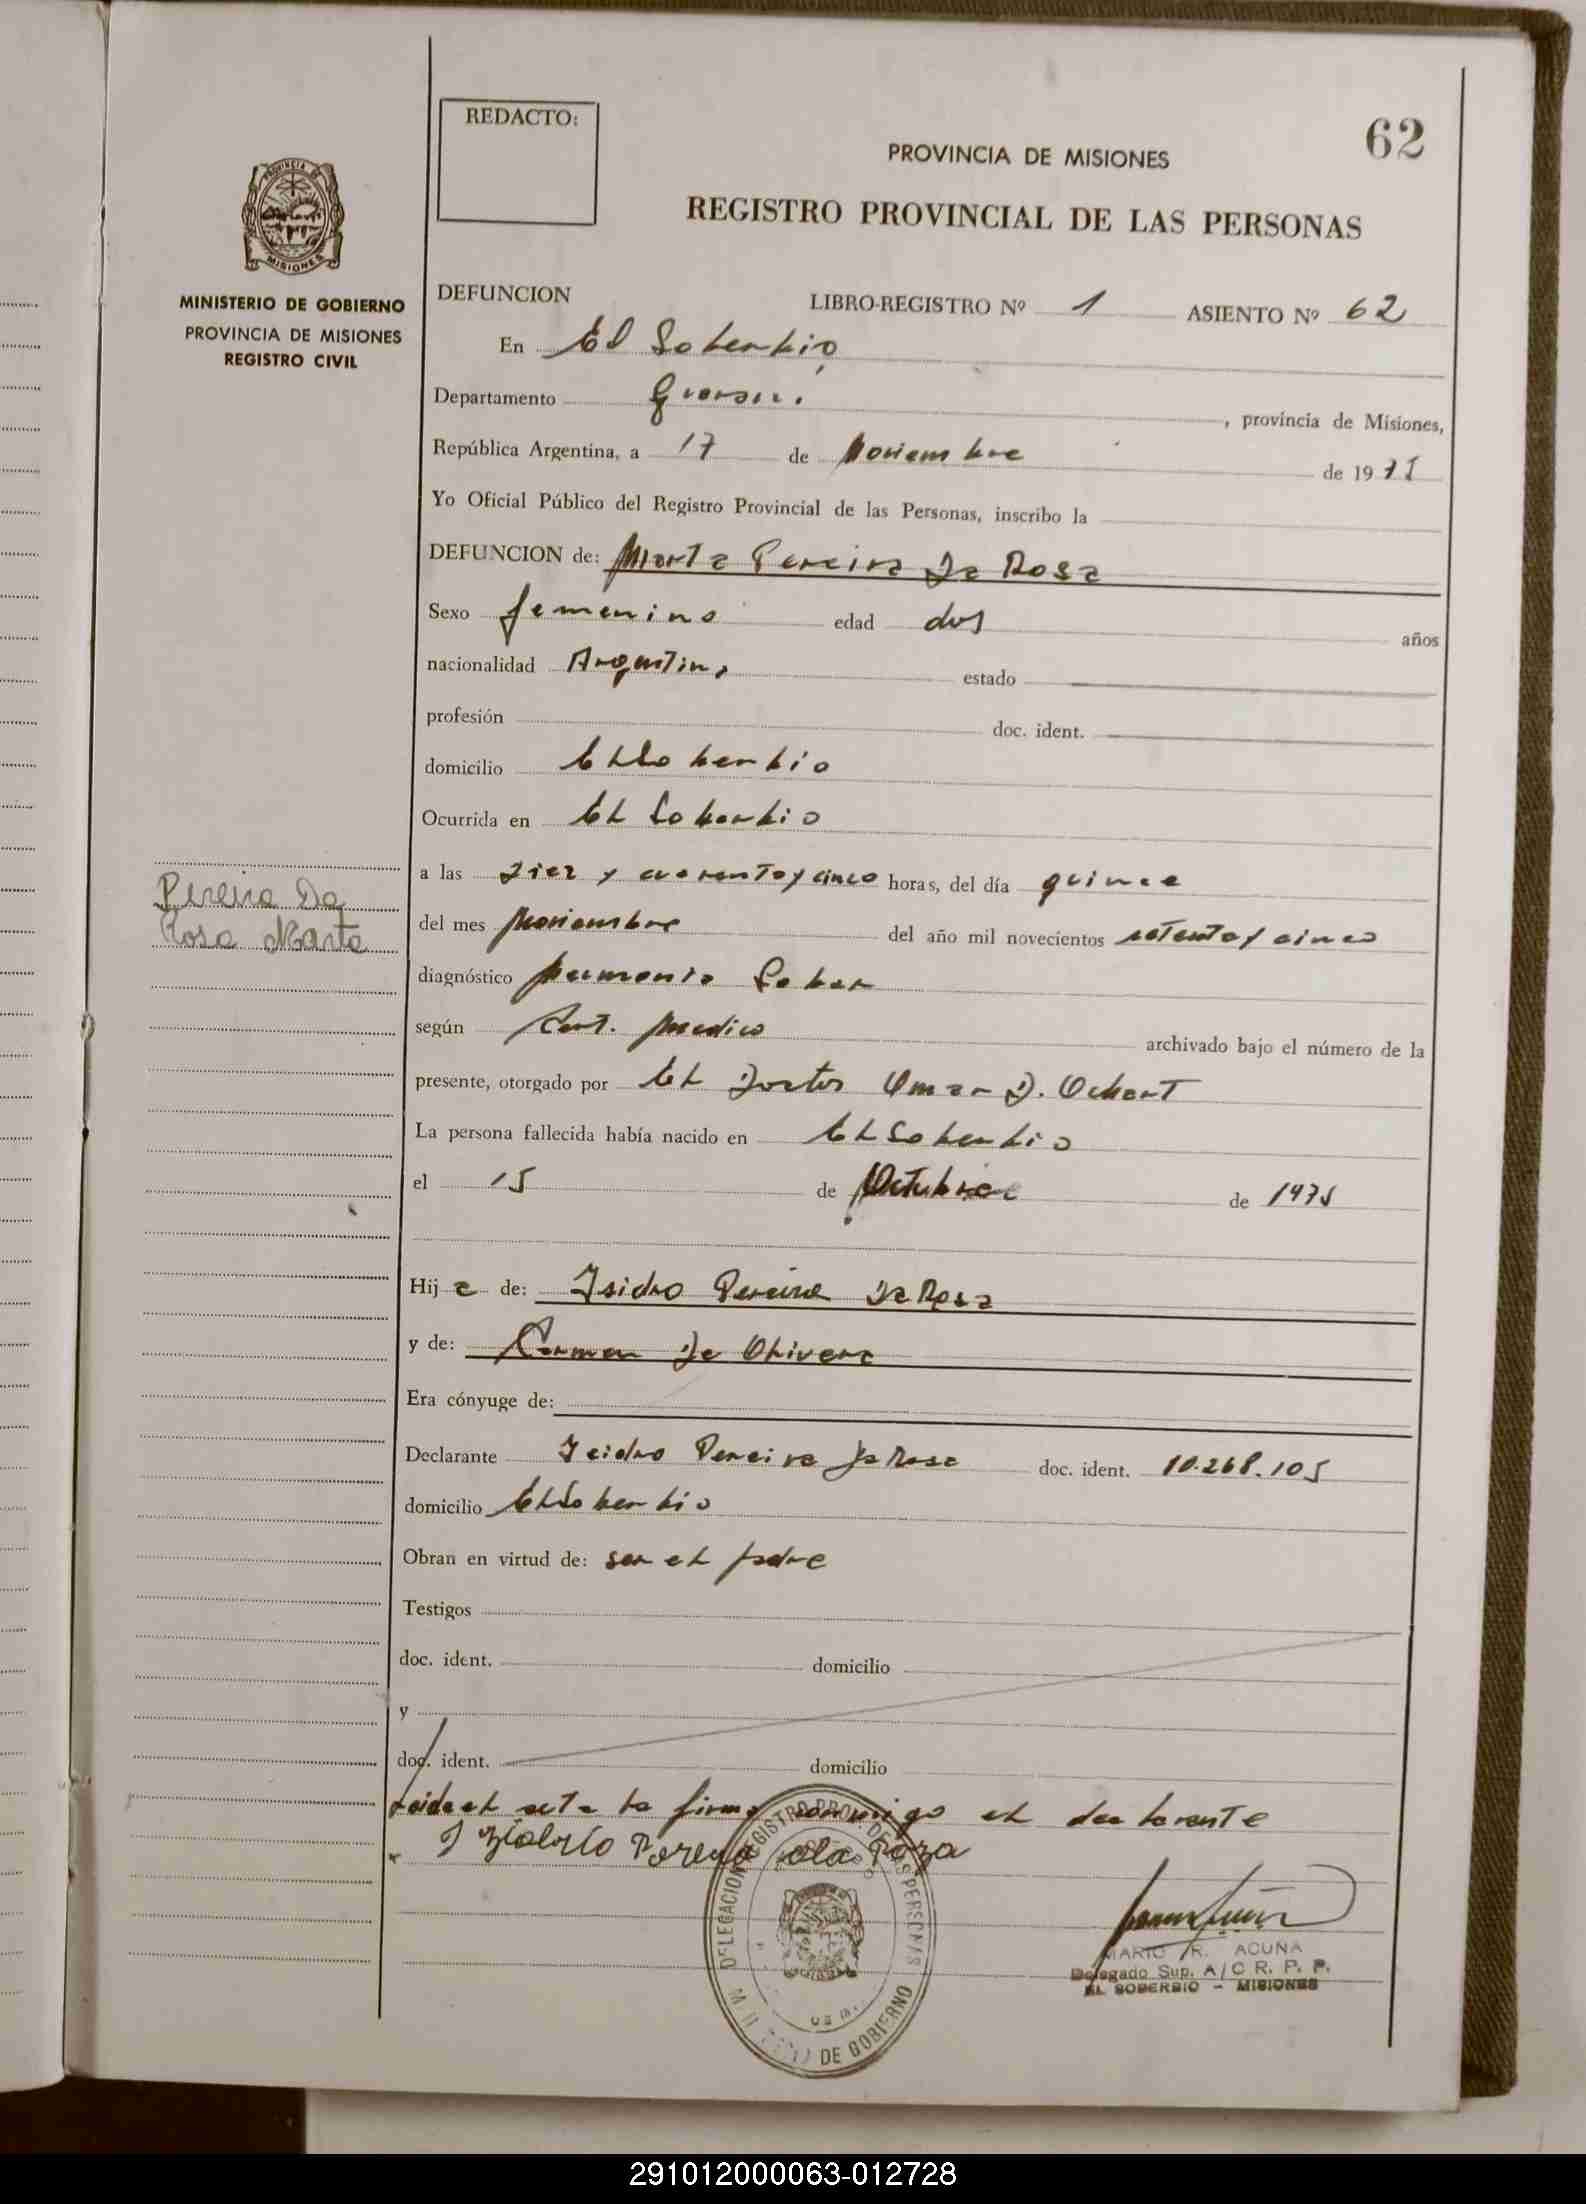 REDACTO:
62
PROVINCIA DE MISIONES
REGISTRO PROVINCIAL DE LAS PERSONAS
PROVINCIA DE
MISIONES
MINISTERIO DE GOBIERNO
PROVINCIA DE MISIONES
REGISTRO CIVIL
DEFUNCION LIBRO-REGISTRO Nº 1 ASIENTO Nº 62
En El Soberbio
Departamento Guaraní, provincia de Misiones,
República Argentina, a 17 de Noviembre de 19
Yo Oficial Público del Registro Provincial de las Personas, inscribo la
DEFUNCION de: Marta Pereira Da Rosa
Sexo femenino edad dos años
nacionalidad Argentina estado
profesión doc. ident.
domicilio El Soberbio
Ocurrida en El Soberbio
a las Diez y cuarenta y cinco horas, del día quince
Pereira Da
Rosa Marta
del mes Noviembre del año mil novecientos setenta y cinco
diagnóstico neumonia Lobar
según Cert. Medico archivado bajo el número de la
presente, otorgado por El Doctor Omar D.
La persona fallecida había nacido en El Soberbio
el 15 de Octubre de 1975
Hija de: Isidro Pereira Da Rosa
y de: Carmen De Olivera
Era cónyuge de:
Declarante Isidro Pereira Da Rosa doc. ident. 10.268.105
domicilio El Soberbio
Obran en virtud de: ser el padre
Testigos
doc. ident. domicilio
y
doc. ident. domicilio
Leida el acta la firma conmigo el declarante
Pereira da Roza
DELEGACION REGISTRO PROV. DE LAS PERSONAS
DE GOBIERNO
MARIO R. ACUÑA
Delegado Sup. A/C R. P. P.
EL SOBERBIO - MISIONES
291012000063-012728